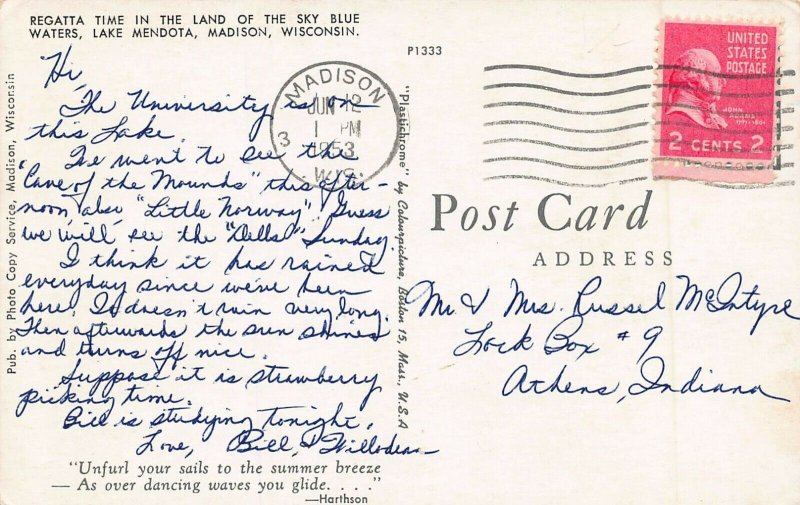 REGATTA TIME IN THE LAND OF THE SKY BLUE
WATERS, LAKE MENDOTA, MADISON, WISCONSIN.
P1333
Hi,
The University is on
this Lake.
We went to see the
"Cave of the Mounds" this after-
noon, also "Little Norway". Guess
we will see the "Dells" Sunday
I think it has rained
everyday since we've been
here. It doesn't rain very long.
Then afterwards the sun shines
and turns off nice.
Suppose it is strawberry
picking time.
Bill is studying tonight.
Love, Bill, & Willodean
"Unfurl your sails to the summer breeze
— As over dancing waves you glide. . . ."
—Harthson
Pub. by Photo Copy Service, Madison, Wisconsin
"Plastichrome" by Colourpicture, Boston 15, Mass., U.S.A
MADISON
JUN 12
1 PM
1953
WIS.
3
UNITED
STATES
POSTAGE
JOHN
ADAMS
2 CENTS 2
Post Card
ADDRESS
Mr. & Mrs. Russel McIntyre
Lock Box #9
Athens, Indiana